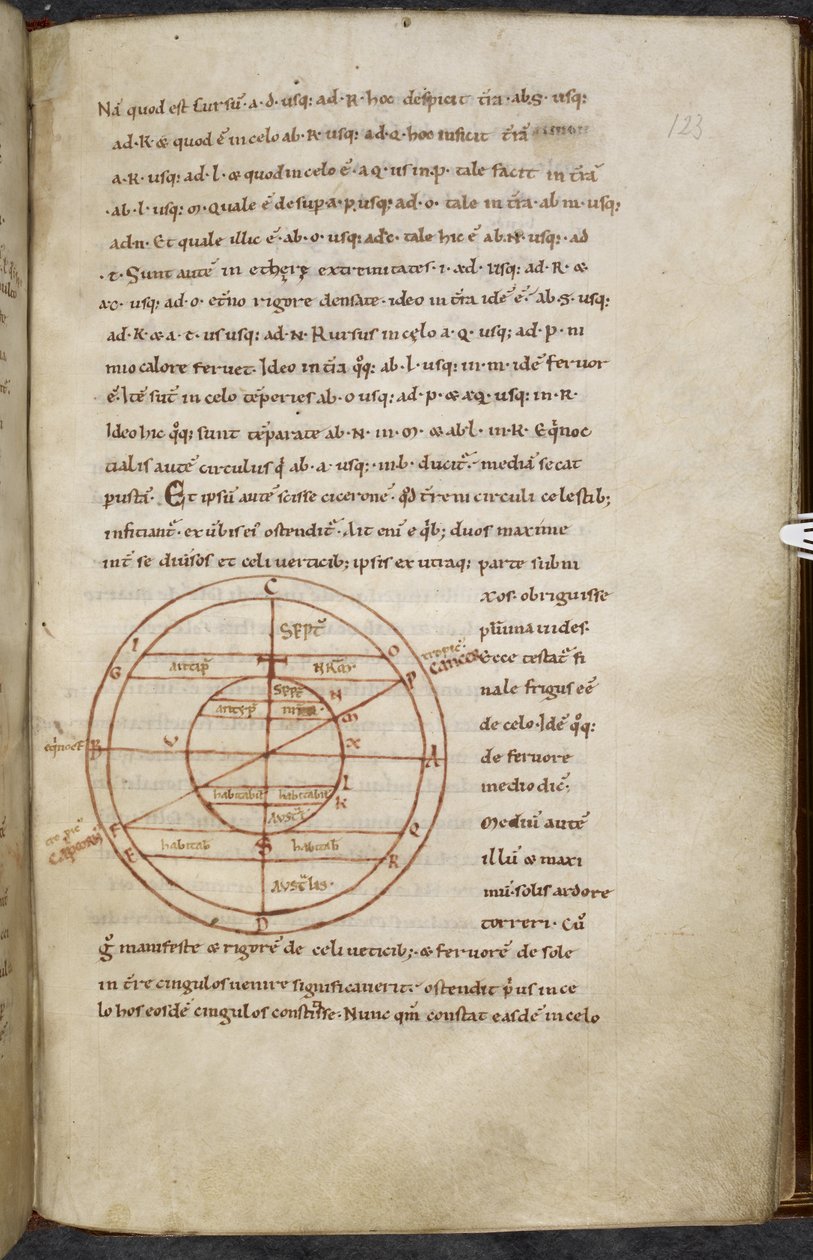 Nā quod est Cursū·a·d·usq: ad·R·hoc despicit tr̄a·ab·S·usq:
ad·K·& quod ē in celo ab·R·usq: ad·Q·hoc inficit tr̄ā
a·K·usq: ad·l·& quod in celo ē·a Q·us in·p·tale facit in tr̄ā
·ab·l·usq: m·Quale ē desup·a·p·usq: ad·o·tale in tr̄a·ab m·usq:
ad·n·Et quale illic ē·ab·o·usq: ad c·tale hic ē ab·N·usq:·ad
·t·Sunt autē in etherę extremitates·i·a d·usq: ad·R·&
a c·usq: ad·o·et̄no rigore densate·ideo in tr̄a idē ē·ab·S·usq:
ad·K·& a·t·us usq: ad·N·Rursus in cęlo a·Q·usq; ad·p·ni
mio calore feruet·Ideo in tr̄a q̊q: ab·l·usq: in·m·idē feruor
ē·Itē sut̄ in celo tēperies ab·o usq: ad·p·& a Q·usq: in·R·
Ideo hic q̊q: sunt tēparate ab·N·in·m·& ab·l·in·K·Eq̄noc
tialis autē circulus q̄ ab·a·usq:·in·b·ducit̄·mediā secat
pustā·Et ipsū autē scisse ciceronē·qd̄ tr̄eni circuli celestib;
inficiant̄·ex ūbis ei ostendit̄·Ait eni e q̄b; duos maxime
int̄ se diūsos et celi uerticib; ipsis ex utraq: parte subni
xos·obriguisse
pruina uides·
Ecce testat̄ fi
nale frigus eē
de celo·Idē q̊q:
de feruore
medio dic̄·
Mediū autē
illū & maxi
mū·solis ardore
torreri·Cū
g̊ manifeste & rigorē de celi ueticib;·& feruorē de sole
in tr̄re cingulos uenire significauerit·ostendit p̄us in ce
lo hos eosdē cingulos constitisse·Nunc qm̄ constat easdē in celo
123
C
SEPT̄
I
O
tropic̄
cancer
G
antip̄
P
T
SEPT̄
N
M
eq̄noct̄
B
V
X
A
L
habitabil̄
habitabil̄
K
AVST̄
F
tropic̄
capricorn̄
Q
E
habitab̄
S
habitab̄
R
AVST̄lis·
D